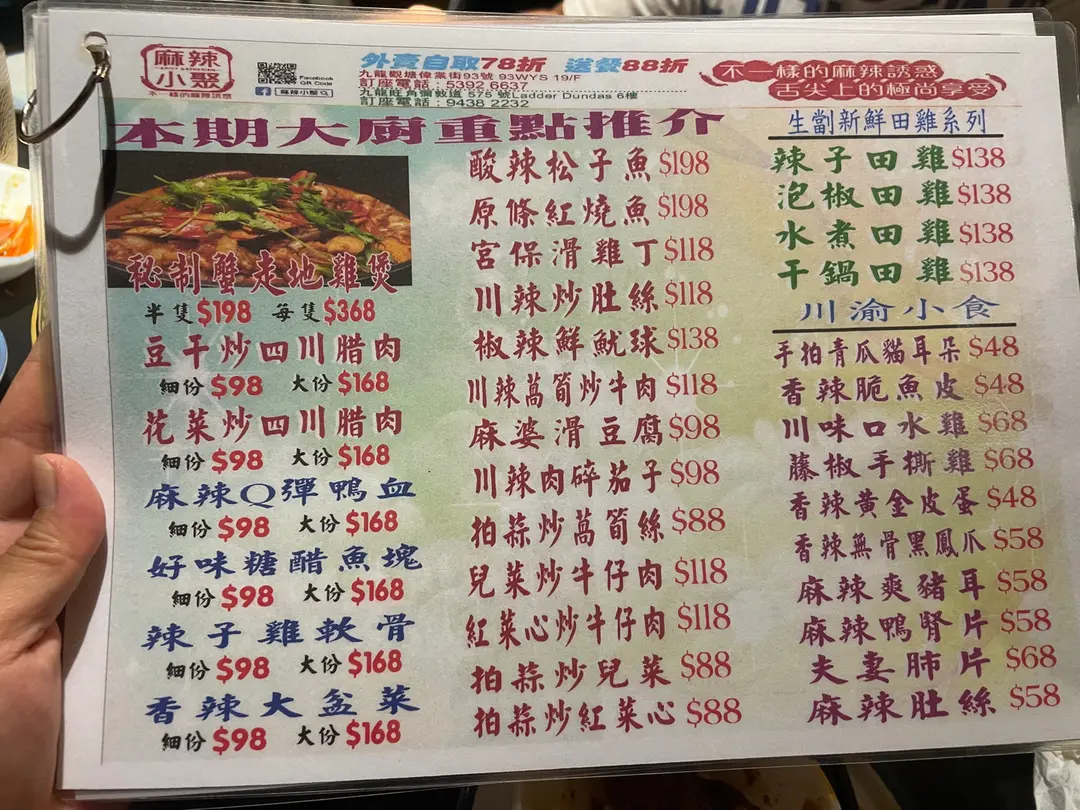 麻辣
小聚
不一樣的麻辣誘惑
Facebook
QR Code
麻辣小聚
外賣自取78折 送餐88折
九龍觀塘偉業街93號 93WYS 19/F
訂座電話：5392 6637
九龍旺角彌敦道 575 號Ladder Dundas 6樓
訂座電話：9438 2232
不一樣的麻辣誘惑
舌尖上的極尚享受
本期大廚重點推介
秘制蟹走地雞煲
半隻$198 每隻$368
豆干炒四川腊肉
細份 $98 大份 $168
花菜炒四川腊肉
細份 $98 大份 $168
麻辣Q彈鴨血
細份 $98 大份 $168
好味糖醋魚塊
細份 $98 大份 $168
辣子雞軟骨
細份 $98 大份 $168
香辣大盆菜
細份 $98 大份 $168
酸辣松子魚 $198
原條紅燒魚 $198
宮保滑雞丁 $118
川辣炒肚絲 $118
椒辣鮮魷球 $138
川辣萵筍炒牛肉 $118
麻婆滑豆腐 $98
川辣肉碎茄子 $98
拍蒜炒萵筍絲 $88
兒菜炒牛仔肉 $118
紅菜心炒牛仔肉 $118
拍蒜炒兒菜 $88
拍蒜炒紅菜心 $88
生劏新鮮田雞系列
辣子田雞 $138
泡椒田雞 $138
水煮田雞 $138
干鍋田雞 $138
川渝小食
手拍青瓜貓耳朵 $48
香辣脆魚皮 $48
川味口水雞 $68
藤椒手撕雞 $68
香辣黃金皮蛋 $48
香辣無骨黑鳳爪 $58
麻辣爽豬耳 $58
麻辣鴨腎片 $58
夫妻肺片 $68
麻辣肚絲 $58